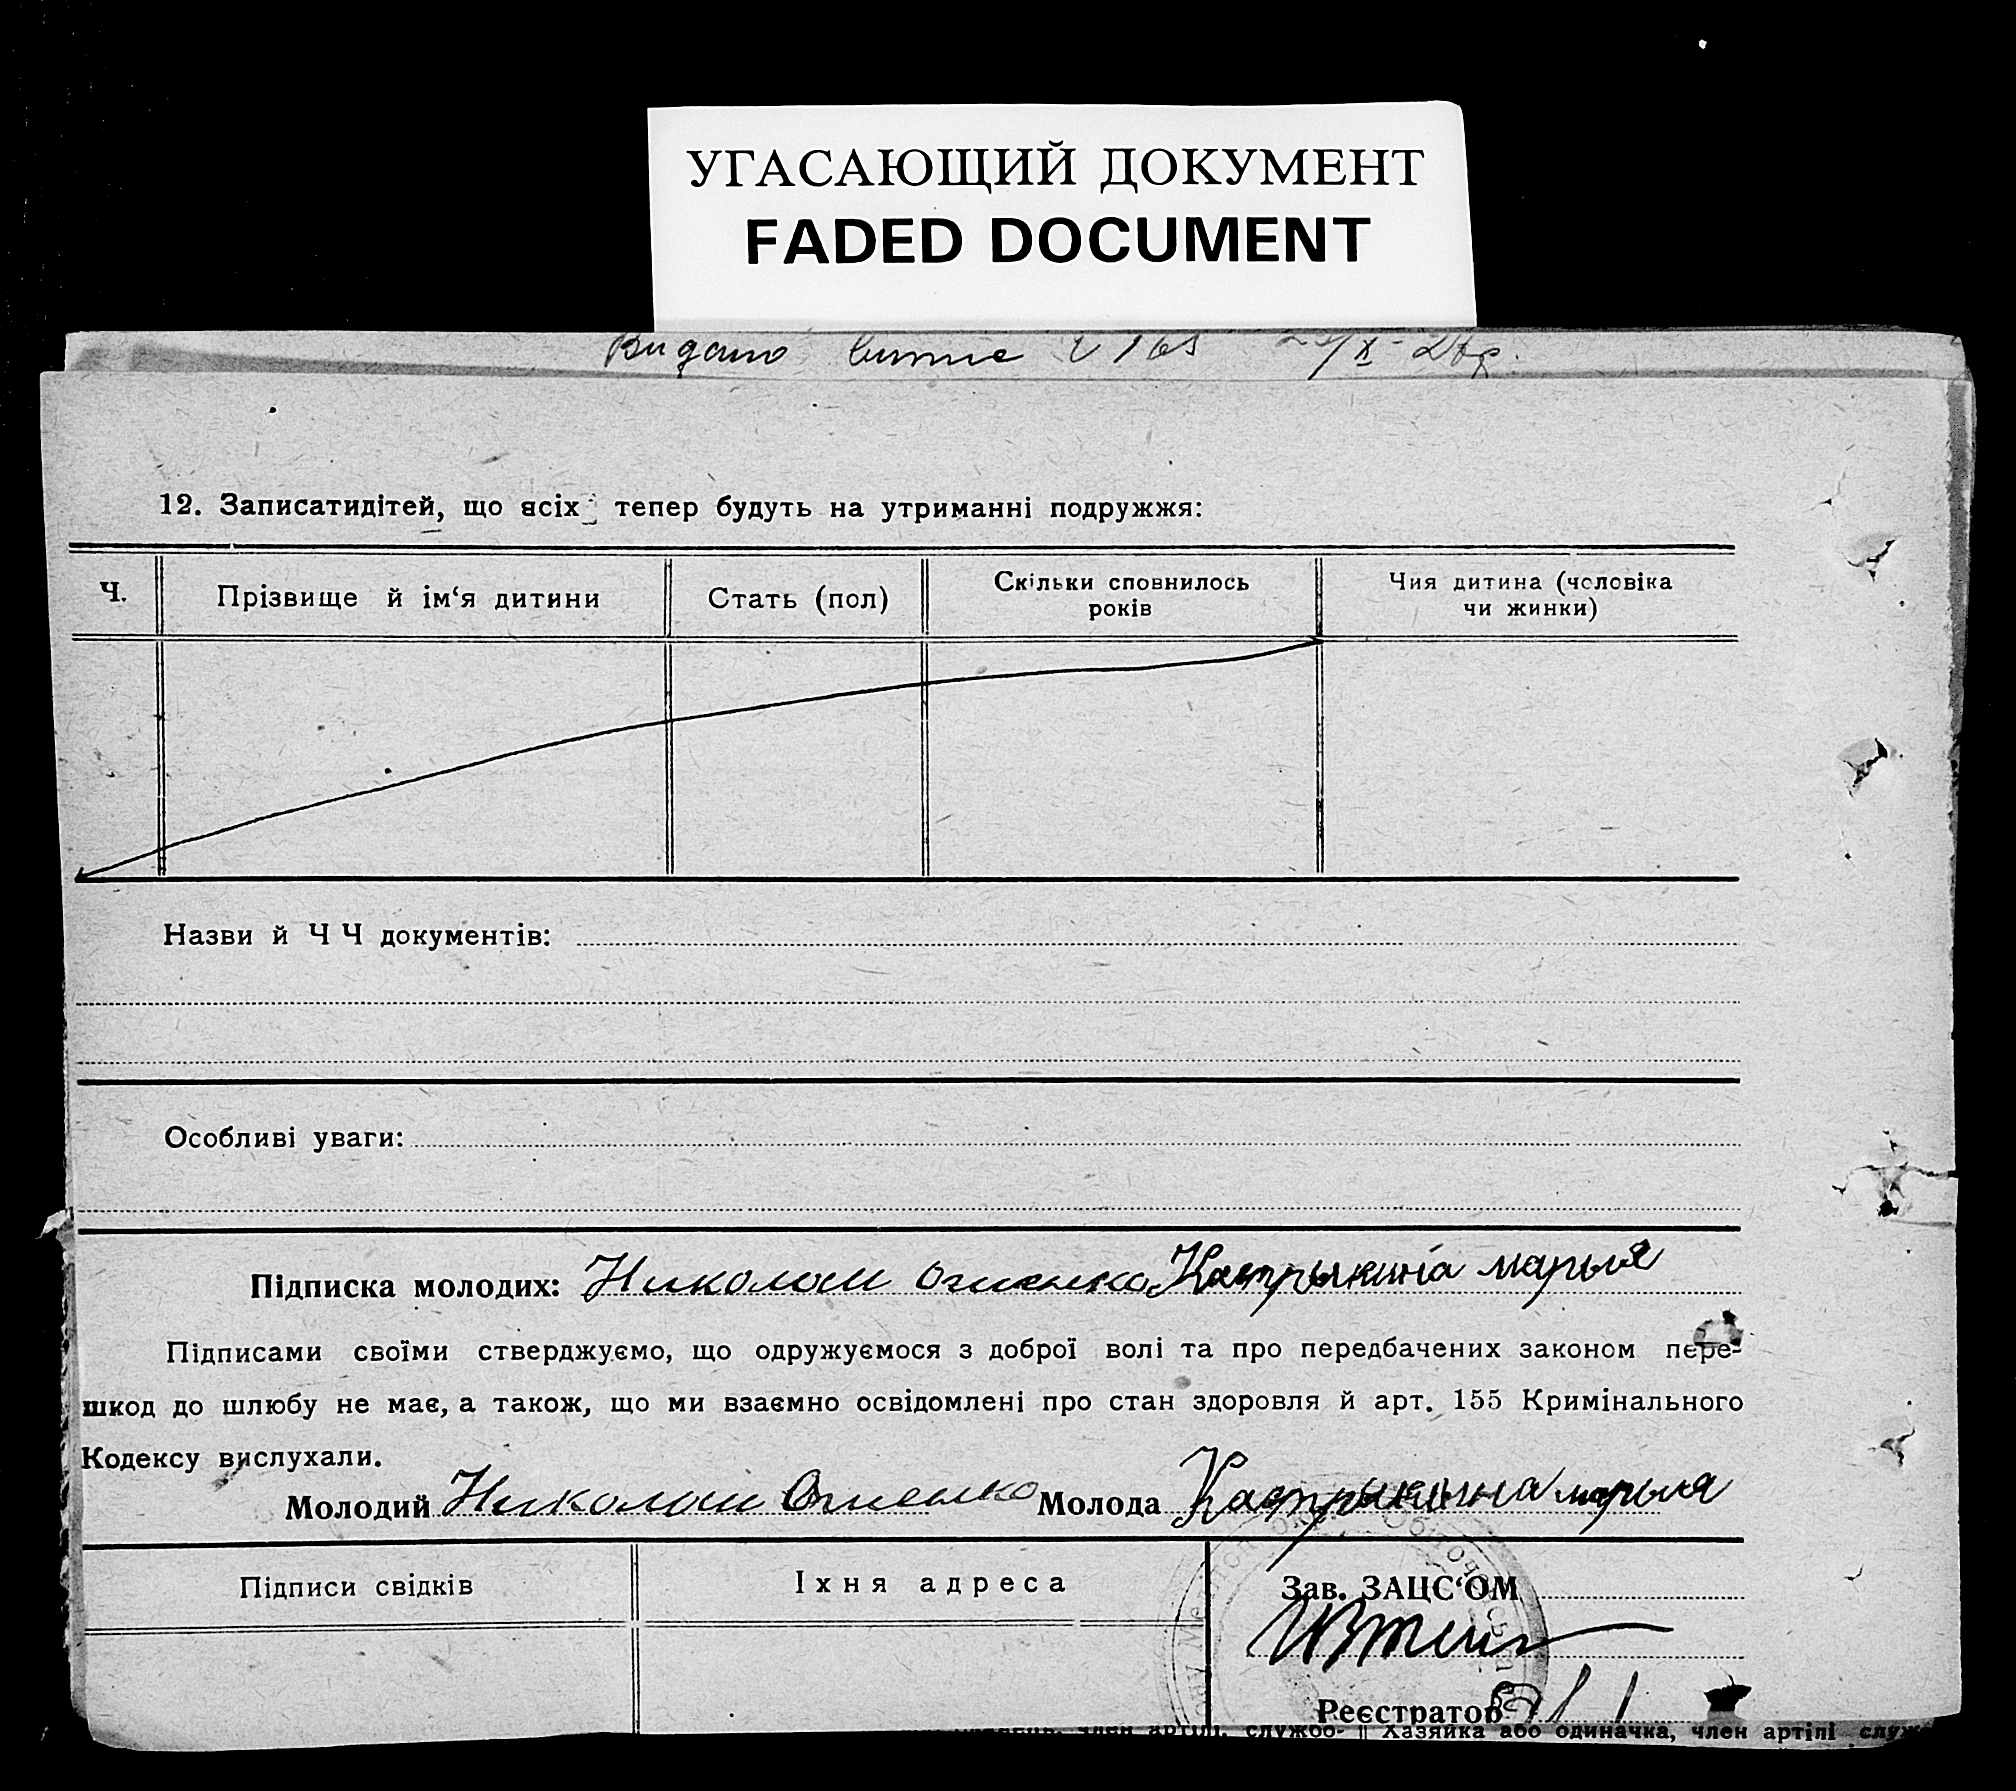 УГАСАЮЩИЙ ДОКУМЕНТ
FADED DOCUMENT
12. Записатидітей, що всіх тепер будуть на утриманні подружжя:
Ч.
Прізвище й ім‘я дитини
Стать (пол)
Скільки сповнилось
років
Чия дитина (человіка
чи жинки)
Назви й Ч Ч документів:
Особливі уваги:
Підписка молодих: Николай Огиенко Кастрыкина марыя
Підписами своїми стверджуємо, що одружуємося з доброї волі та про передбачених законом пере-
шкод до шлюбу не має, а також, що ми взаємно освідомлені про стан здоровля й арт. 155 Кримінального
Кодексу вислухали.
Молодий Николай Огиенко Молода Кастрыкина марыя
Підписи свідків
Їхня адреса
Зав. ЗАЦС‘ОМ
Реєстратор
член артілі, службо- Хазяйка або одиначка, член артілі служ